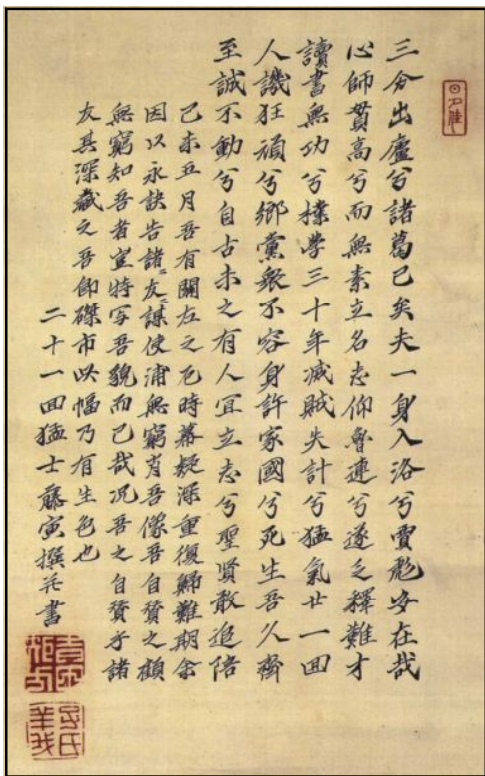 三分出廬兮諸葛已矣夫一身入洛兮賈彪安在哉
心師貫高兮而無素立名志仰魯連兮遂乏釋難才
讀書無功兮樸學三十年滅賊失計兮猛氣廿一回
人譏狂頑兮鄉黨衆不容身許家國兮死生吾久齊
至誠不動兮自古未之有人宜立志兮聖賢敢追陪
己未五月吾有關左之厄時幕疑深重復歸難期余
因以永訣告諸〻友〻謀使浦無窮肖吾像吾自贊之顧
無窮知吾者豈特写吾貌而已哉况吾之自贊乎諸
友其深藏之吾即磔市此幅乃有生色也
二十一回猛士藤寅撰并書